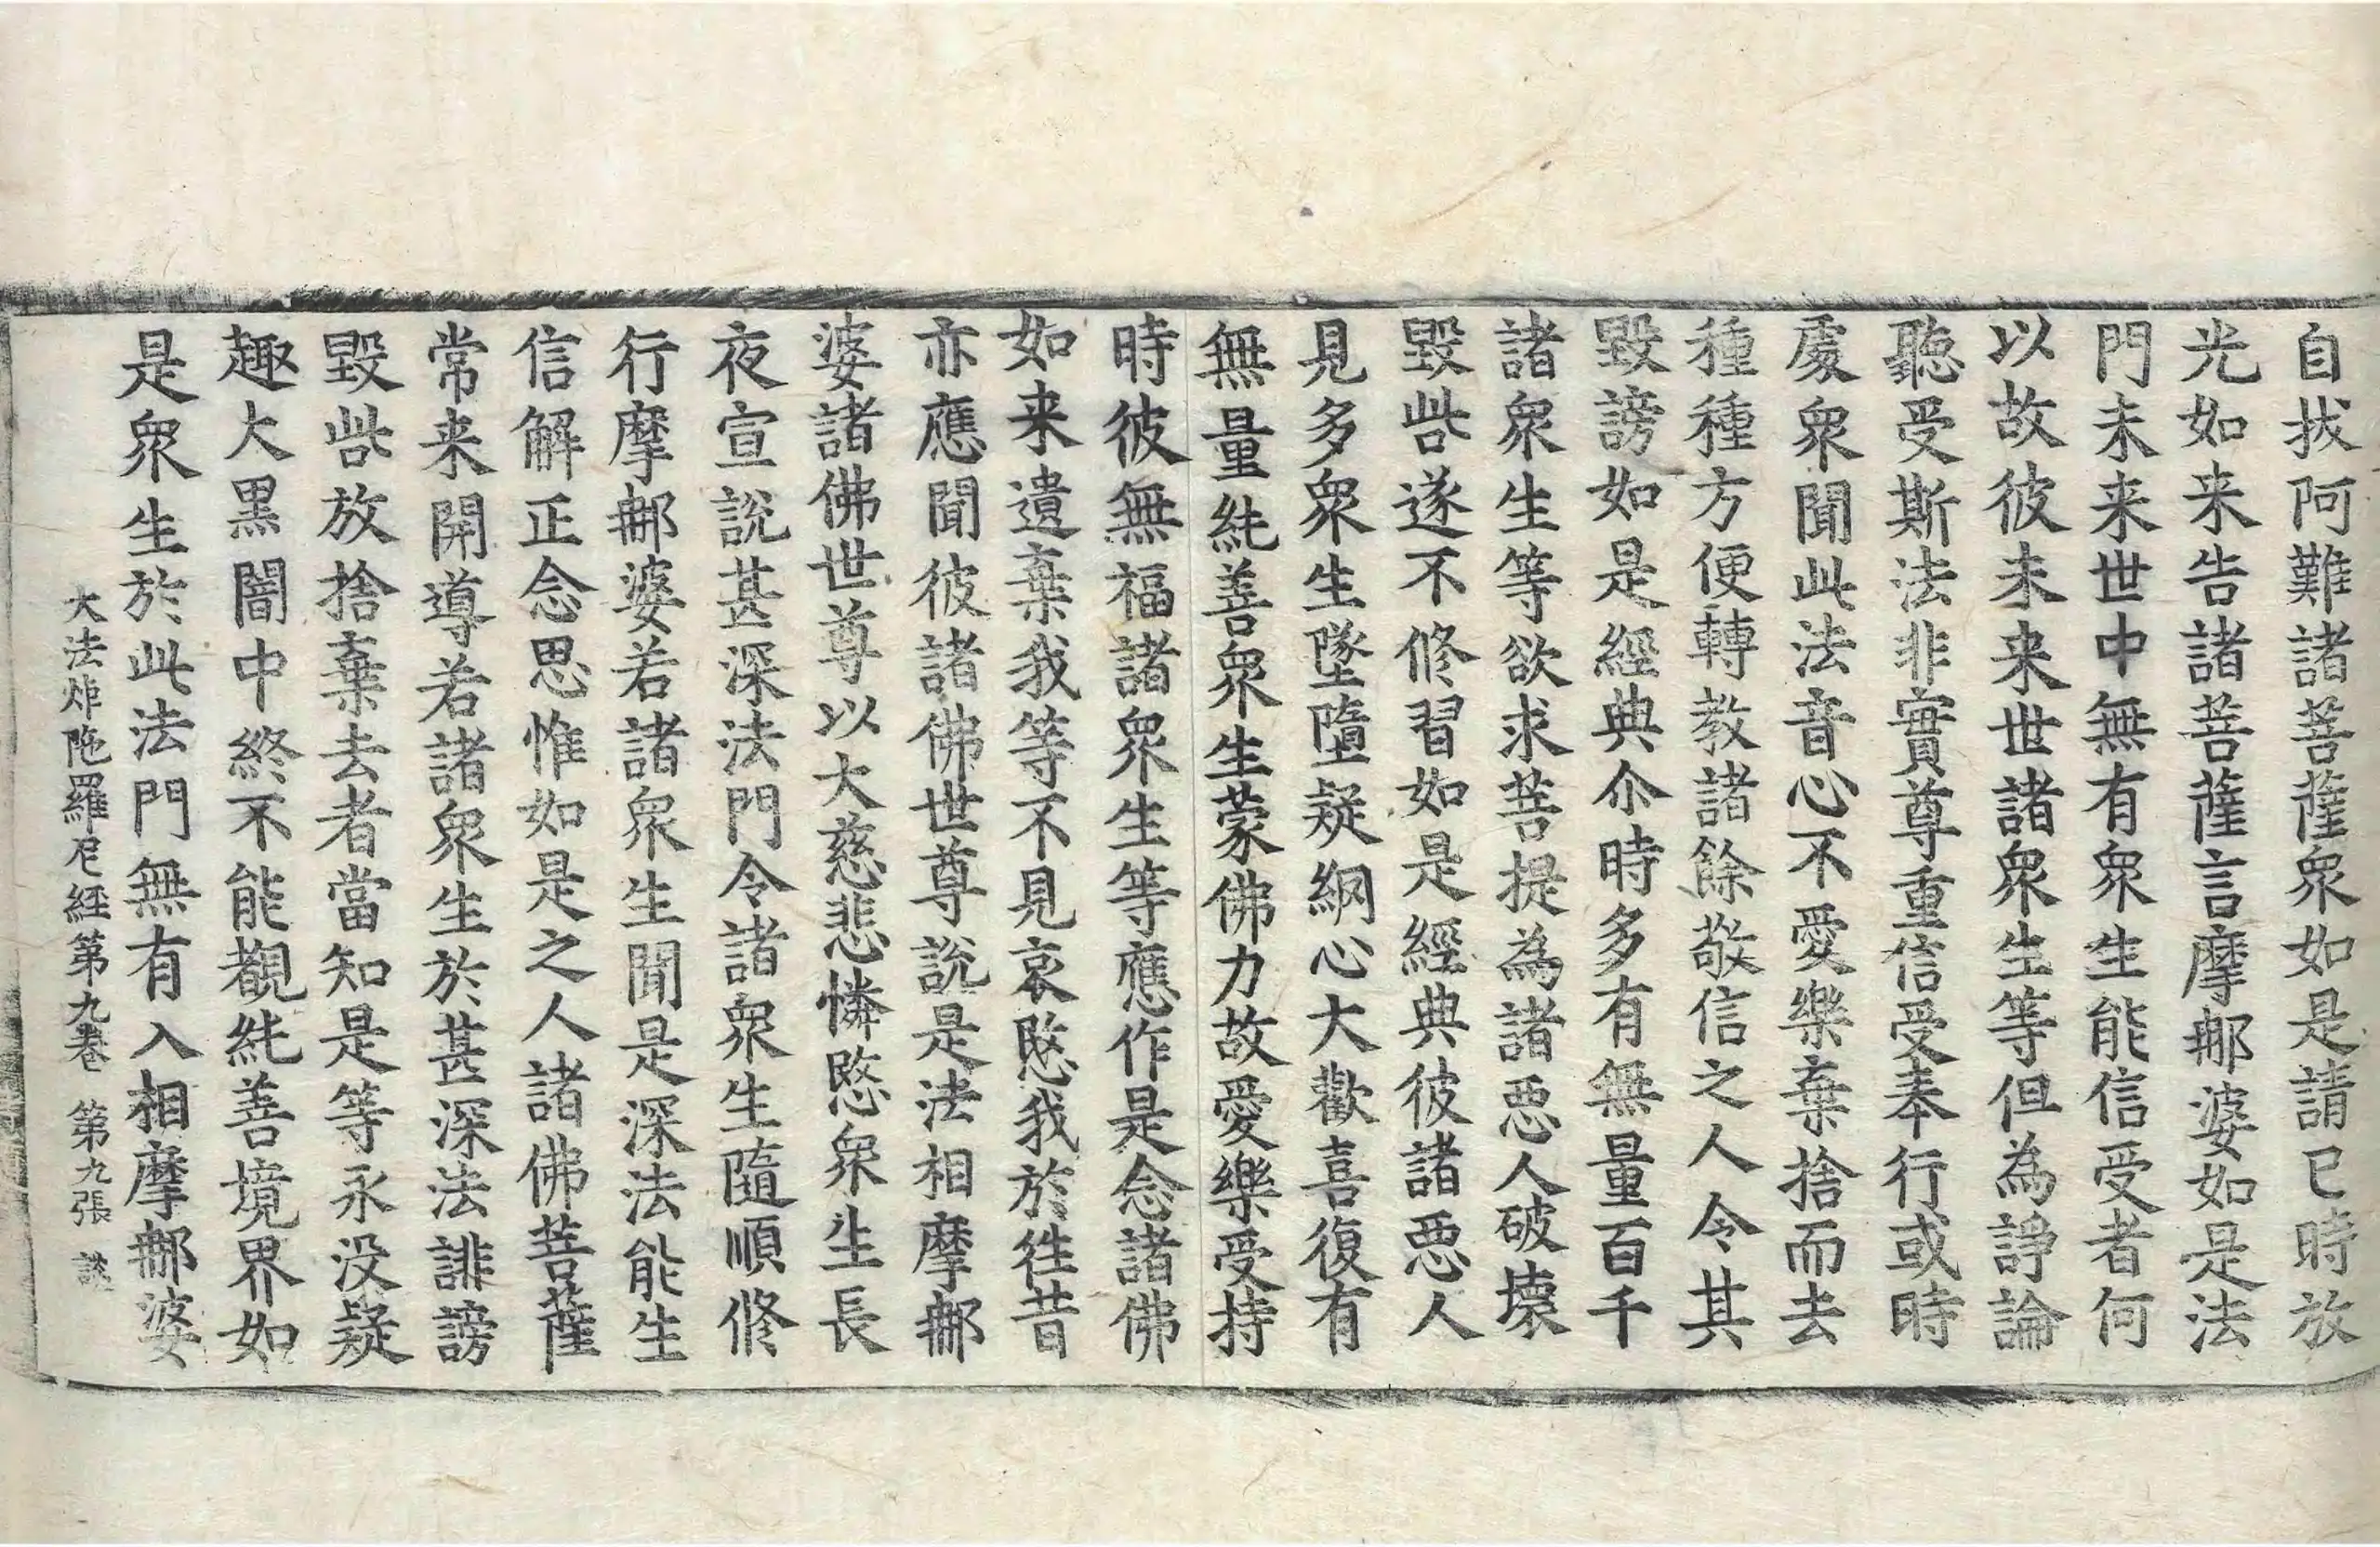 自拔阿難諸菩薩衆如是請已時放
光如来告諸菩薩言摩郍婆如是法
門未来世中無有衆生能信受者何
以故彼未来世諸衆生等但為諍論
聽受斯法非實尊重信受奉行或時
處衆聞此法音心不愛樂棄捨而去
種種方便轉教諸餘敬信之人令其
毀謗如是經典尒時多有無量百千
諸衆生等欲求菩提為諸惡人破壞
毀呰遂不修習如是經典彼諸惡人
見多衆生墜墮疑網心大歡喜復有
無量純善衆生蒙佛力故愛樂受持
時彼無福諸衆生等應作是念諸佛
如来遺棄我等不見哀愍我於往昔
亦應聞彼諸佛世尊說是法相摩郍
婆諸佛世尊以大慈悲憐愍衆生長
夜宣說甚深法門令諸衆生隨順修
行摩郍婆若諸衆生聞是深法能生
信解正念思惟如是之人諸佛菩薩
常来開導若諸衆生於甚深法誹謗
毀呰放捨棄去者當知是等永没疑
趣大黑闇中終不能觀純善境界如
是衆生於此法門無有入相摩郍婆
大法炬陁羅尼經第九卷 第九張 談